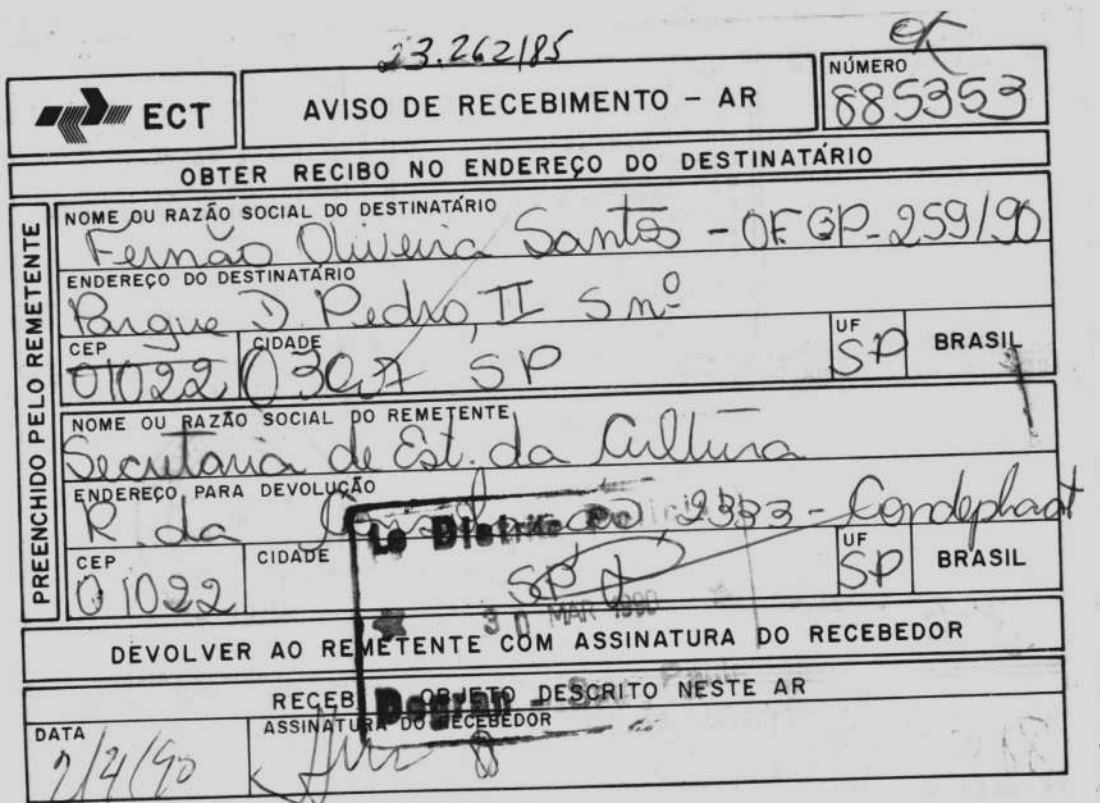 23.262/85
OK
ECT
AVISO DE RECEBIMENTO - AR
NÚMERO
885353
OBTER RECIBO NO ENDEREÇO DO DESTINATÁRIO
PREENCHIDO PELO REMETENTE
NOME OU RAZÃO SOCIAL DO DESTINATÁRIO
Fernão Oliveira Santos - OF GP-259/90
ENDEREÇO DO DESTINATÁRIO
Parque D. Pedro, II S nº
CEP
01022
CIDADE
SP
UF
SP
BRASIL
NOME OU RAZÃO SOCIAL DO REMETENTE
Secretaria de Est. da Cultura
ENDEREÇO PARA DEVOLUÇÃO
R. da 2333 - Condephaat
CEP
01022
CIDADE
SP
UF
SP
BRASIL
1.o Distrito Policial
30 MAR 1990
DEVOLVER AO REMETENTE COM ASSINATURA DO RECEBEDOR
RECEBI OBJETO DESCRITO NESTE AR
Degran - São Paulo
DATA
2/4/90
ASSINATURA DO RECEBEDOR